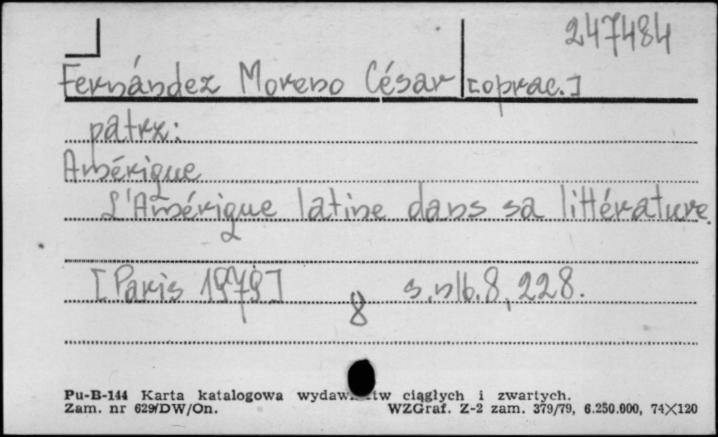 247484
Fernández Moreno César [oprac.]
patrz:
Amérique
L'Amérique latine dans sa littérature.
[Paris 1979] 8 s.nlb.8, 228.
Pu-B-144 Karta katalogowa ciągłych i zwartych.
Zam. nr 629/DW/On. WZGraf. Z-2 zam. 379/79, 6.250.000, 74×120